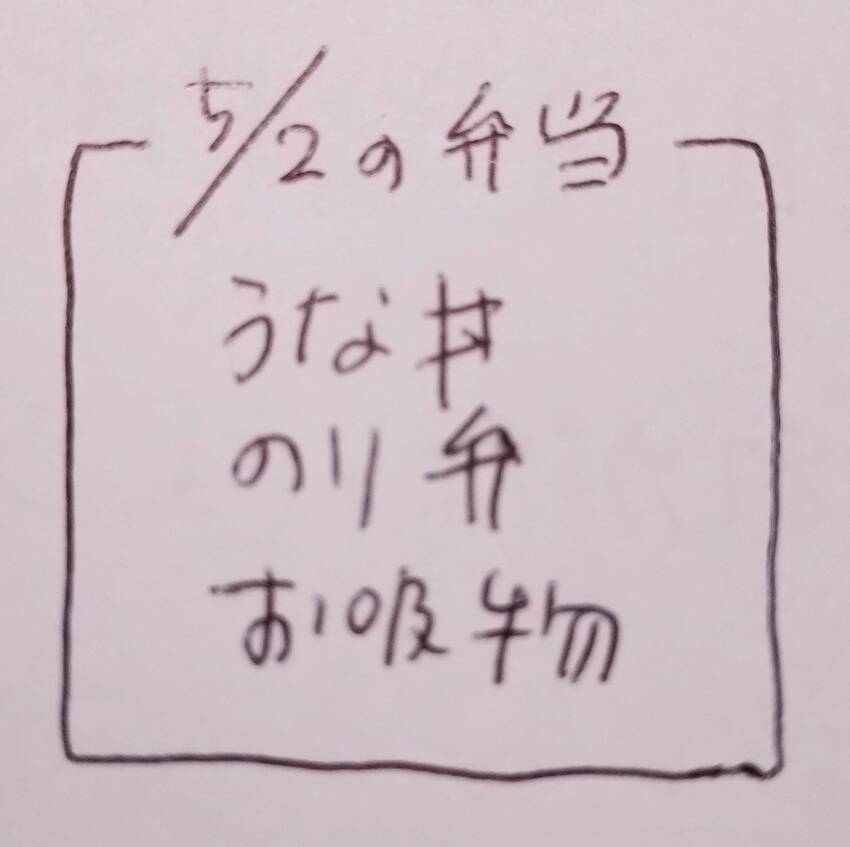 5/2の弁当
うな丼
のり弁
お吸物